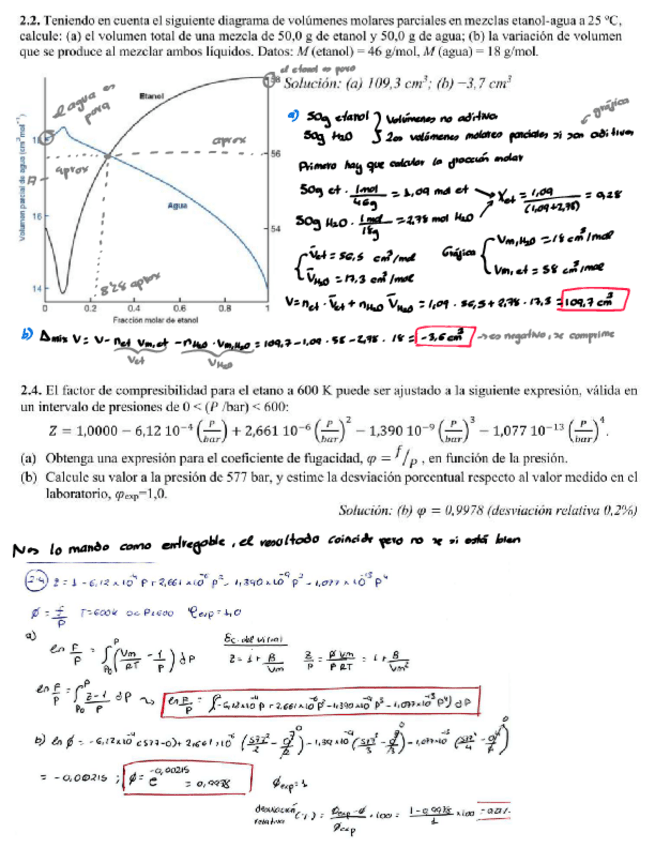 2.2. Teniendo en cuenta el siguiente diagrama de volúmenes molares parciales en mezclas etanol-agua a 25 ºC,
calcule: (a) el volumen total de una mezcla de 50,0 g de etanol y 50,0 g de agua; (b) la variación de volumen
que se produce al mezclar ambos líquidos. Datos: M (etanol) = 46 g/mol, M (agua) = 18 g/mol.
el etanol es puro
Solución: (a) 109,3 cm³; (b) −3,7 cm³
el agua es pura
Etanol
Agua
aprox
aprox
0,28 aprox
58
56
54
18
16
14
0 0.2 0.4 0.6 0.8 1
Fracción molar de etanol
Volumen parcial de agua (cm³mol⁻¹)
a) 50g etanol } Volúmenes no aditivos
50g H₂O } Los volúmenes molares parciales si son aditivos
gráfica
Primero hay que calcular la fracción molar
50g et · 1mol/46g = 1,09 mol et → Xet = 1,09/(1,09+2,78) = 0,28
50g H₂O · 1mol/18g = 2,78 mol H₂O
V̄et = 56,5 cm³/mol
V̄H₂O = 17,3 cm³/mol
Gráfica { Vm,H₂O = 18 cm³/mol
Vm,et = 58 cm³/mol
V = net · V̄et + nH₂O V̄H₂O = 1,09 · 56,5 + 2,78 · 17,3 = 109,7 cm³
b) Δmix V = V − net Vm,et − nH₂O · Vm,H₂O = 109,7 − 1,09 · 58 − 2,78 · 18 = −3,6 cm³ → es negativo, se comprime
Vet VH₂O
2.4. El factor de compresibilidad para el etano a 600 K puede ser ajustado a la siguiente expresión, válida en
un intervalo de presiones de 0 < (P /bar) < 600:
Z = 1,0000 − 6,12 10⁻⁴ (P/bar) + 2,661 10⁻⁶ (P/bar)² − 1,390 10⁻⁹ (P/bar)³ − 1,077 10⁻¹³ (P/bar)⁴.
(a) Obtenga una expresión para el coeficiente de fugacidad, φ = f/p, en función de la presión.
(b) Calcule su valor a la presión de 577 bar, y estime la desviación porcentual respecto al valor medido en el
laboratorio, φexp=1,0.
Solución: (b) φ = 0,9978 (desviación relativa 0,2%)
Nos lo mando como entregable, el resultado coincide pero no se si está bien
2.4 Z = 1 − 6,12×10⁻⁴ P + 2,661×10⁻⁶ P² − 1,390×10⁻⁹ P³ − 1,077×10⁻¹³ P⁴
ϕ = f/P T=600K 0<P<600 φexp = 1,0
a)
Ec. del virial
ln F/P = ∫ (Vm/RT − 1/P) dP
Z = 1 + B/Vm
ln F/P = ∫ (Z−1)/P dP
b)
= −0,00215 ; ϕ = e^−0,00215 = 0,9978
ϕexp = 1
desviación relativa (%) = (ϕexp − ϕ)/ϕexp · 100 = (1 − 0,9978)/1 × 100